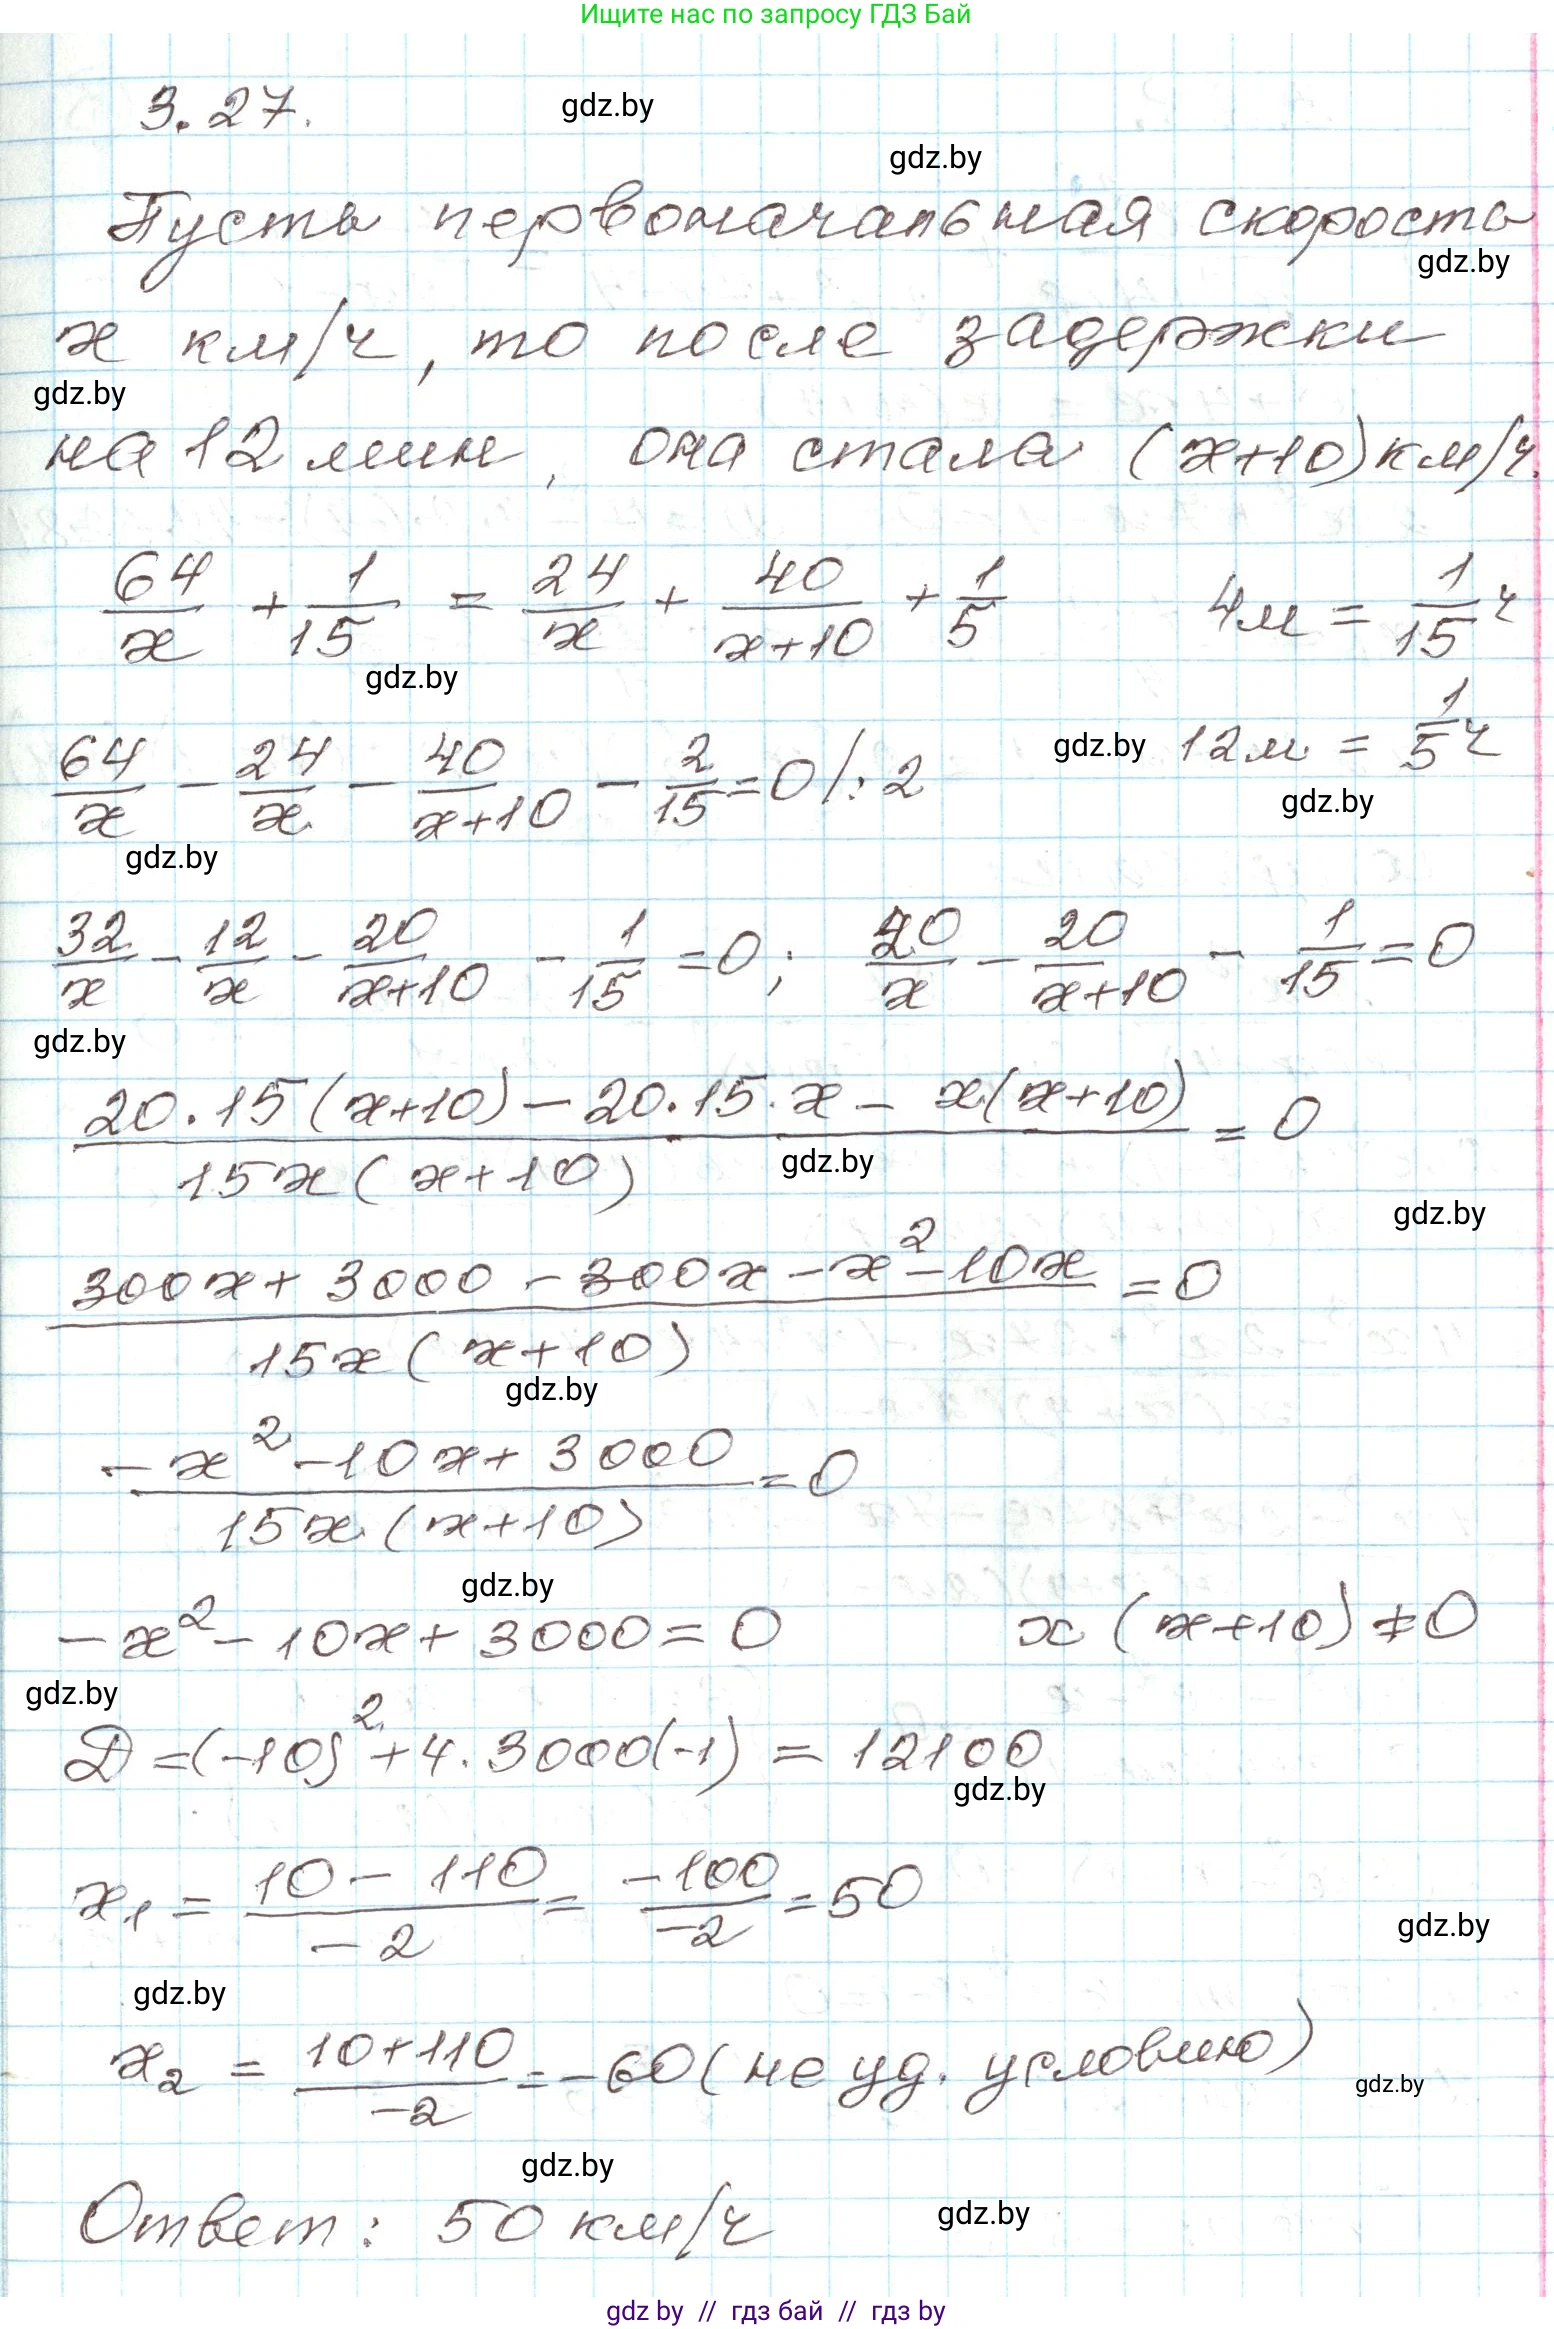 Ищите нас по запросу ГДЗ Бай
3.27.
gdz.by
gdz.by
Пусть первоначальная скорость
gdz.by
x км/ч, то после задержки
gdz.by
на 12 мин, она стала (x+10) км/ч.
64/x + 1/15 = 24/x + 40/(x+10) + 1/5    4м = 1/15 ч
gdz.by
64/x - 24/x - 40/(x+10) - 2/15 = 0 /:2    gdz.by 12м = 1/5 ч
gdz.by
gdz.by
32/x - 12/x - 20/(x+10) - 1/15 = 0; 20/x - 20/(x+10) - 1/15 = 0
gdz.by
(20·15(x+10) - 20·15·x - x(x+10))/(15x(x+10)) = 0
gdz.by
gdz.by
(300x + 3000 - 300x - x² - 10x)/(15x(x+10)) = 0
gdz.by
(-x² - 10x + 3000)/(15x(x+10)) = 0
gdz.by
-x² - 10x + 3000 = 0    x(x+10) ≠ 0
gdz.by
D = (-10)² + 4·3000(-1) = 12100
gdz.by
x₁ = (10 - 110)/(-2) = -100/-2 = 50
gdz.by
gdz.by
x₂ = (10+110)/(-2) = -60 (не уд. условию)
gdz.by
gdz.by
Ответ: 50 км/ч
gdz.by
gdz by // гдз бай // гдз by